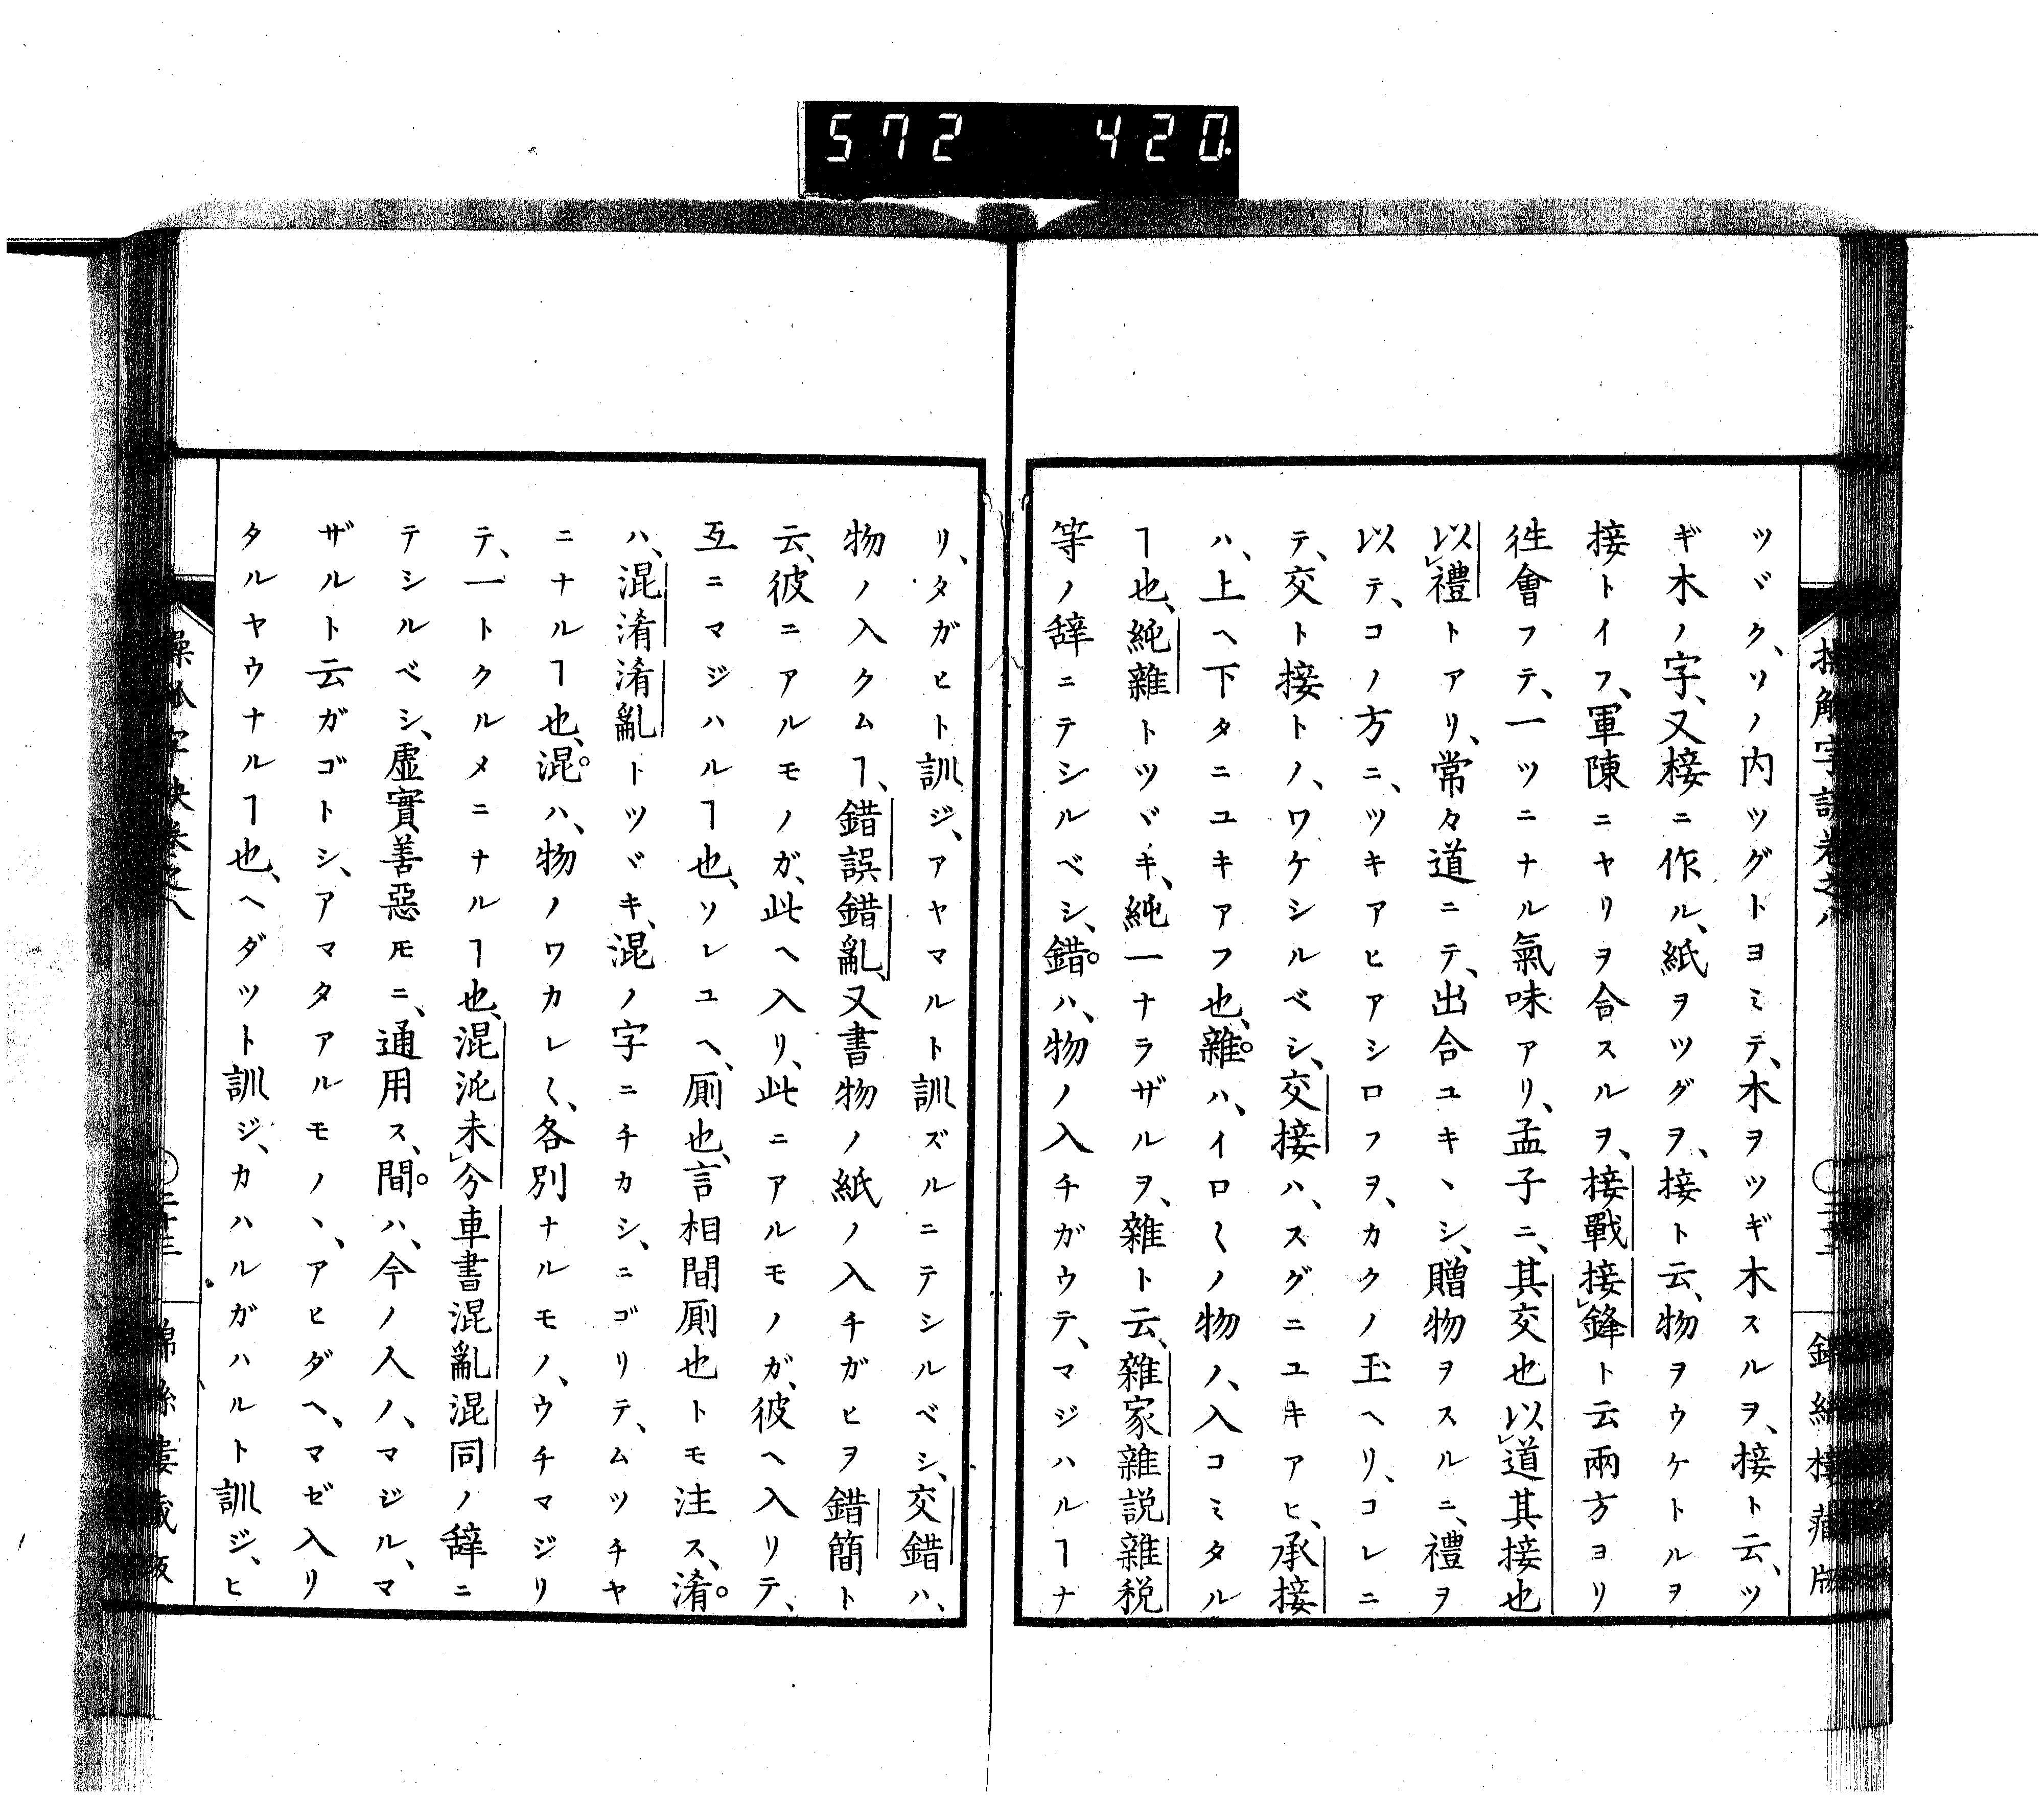 572 420
ツヾク、ソノ内ツグトヨミテ、木ヲツギ木スルヲ、接ト云、ツ
ギ木ノ字、又椄ニ作ル、紙ヲツグヲ、接ト云、物ヲウケトルヲ
接トイフ、軍陳ニヤリヲ合スルヲ、接戰接鋒ト云兩方ヨリ
徃會フテ、一ツニナル氣味アリ、孟子ニ、其交也以道其接也
以禮トアリ、常々道ニテ、出合ユキヽシ、贈物ヲスルニ、禮ヲ
以テ、コノ方ニ、ツキアヒアシロフヲ、カクノ玉ヘリ、コレニ
テ、交ト接トノ、ワケシルベシ、交接ハ、スグニユキアヒ、承接
ハ、上ヘ下タニユキアフ也、雜。ハ、イロ〱ノ物ノ、入コミタル
ヿ也、純雜トツヾキ、純一ナラザルヲ、雜ト云、雜家雜説雜税
等ノ辞ニテシルベシ、錯。ハ、物ノ入チガウテ、マジハルヿナ
リ、タガヒト訓ジ、アヤマルト訓ズルニテシルベシ、交錯ハ、
物ノ入クムヿ、錯誤錯亂、又書物ノ紙ノ入チガヒヲ錯簡ト
云、彼ニアルモノガ、此ヘ入リ、此ニアルモノガ、彼ヘ入リテ、
互ニマジハルヿ也、ソレユヘ、厠也、言相間厠也トモ注ス、淆。
ハ、混淆淆亂トツヾキ、混ノ字ニチカシ、ニゴリテ、ムツチヤ
ニナルヿ也、混。ハ、物ノワカレ〱、各別ナルモノ、ウチマジリ
テ、一トクルメニナルヿ也、混沌未分車書混亂混同ノ辞ニ
テシルベシ、虛實善惡𪜈ニ、通用ス、間。ハ、今ノ人ノ、マジル、マ
ザルト云ガゴトシ、アマタアルモノヽ、アヒダヘ、マゼ入リ
タルヤウナルヿ也、ヘダツト訓ジ、カハルガハルト訓ジ、ヒ